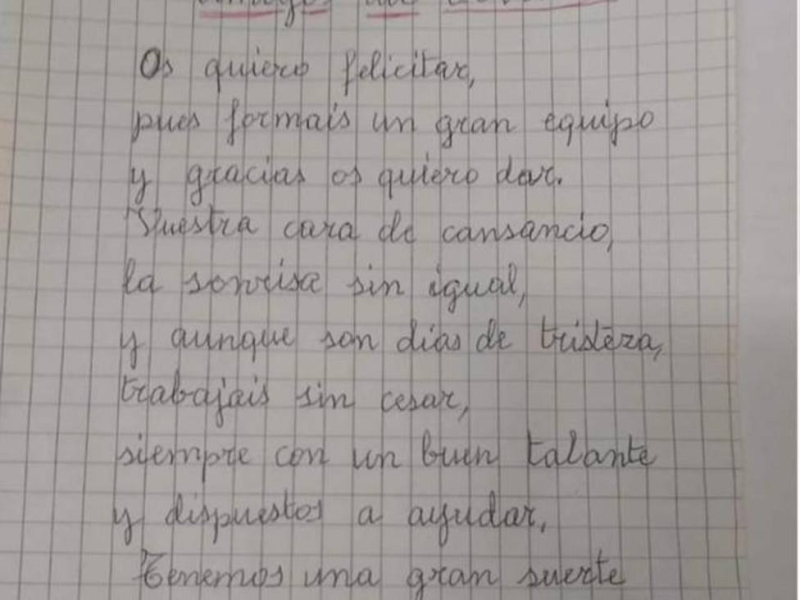 Os quiero felicitar,
pues formais un gran equipo
y gracias os quiero dar.
Vuestra cara de cansancio,
la sonrisa sin igual,
y aunque son días de tristeza,
trabajais sin cesar,
siempre con un buen talante
y dispuestos a ayudar,
Tenemos una gran suerte